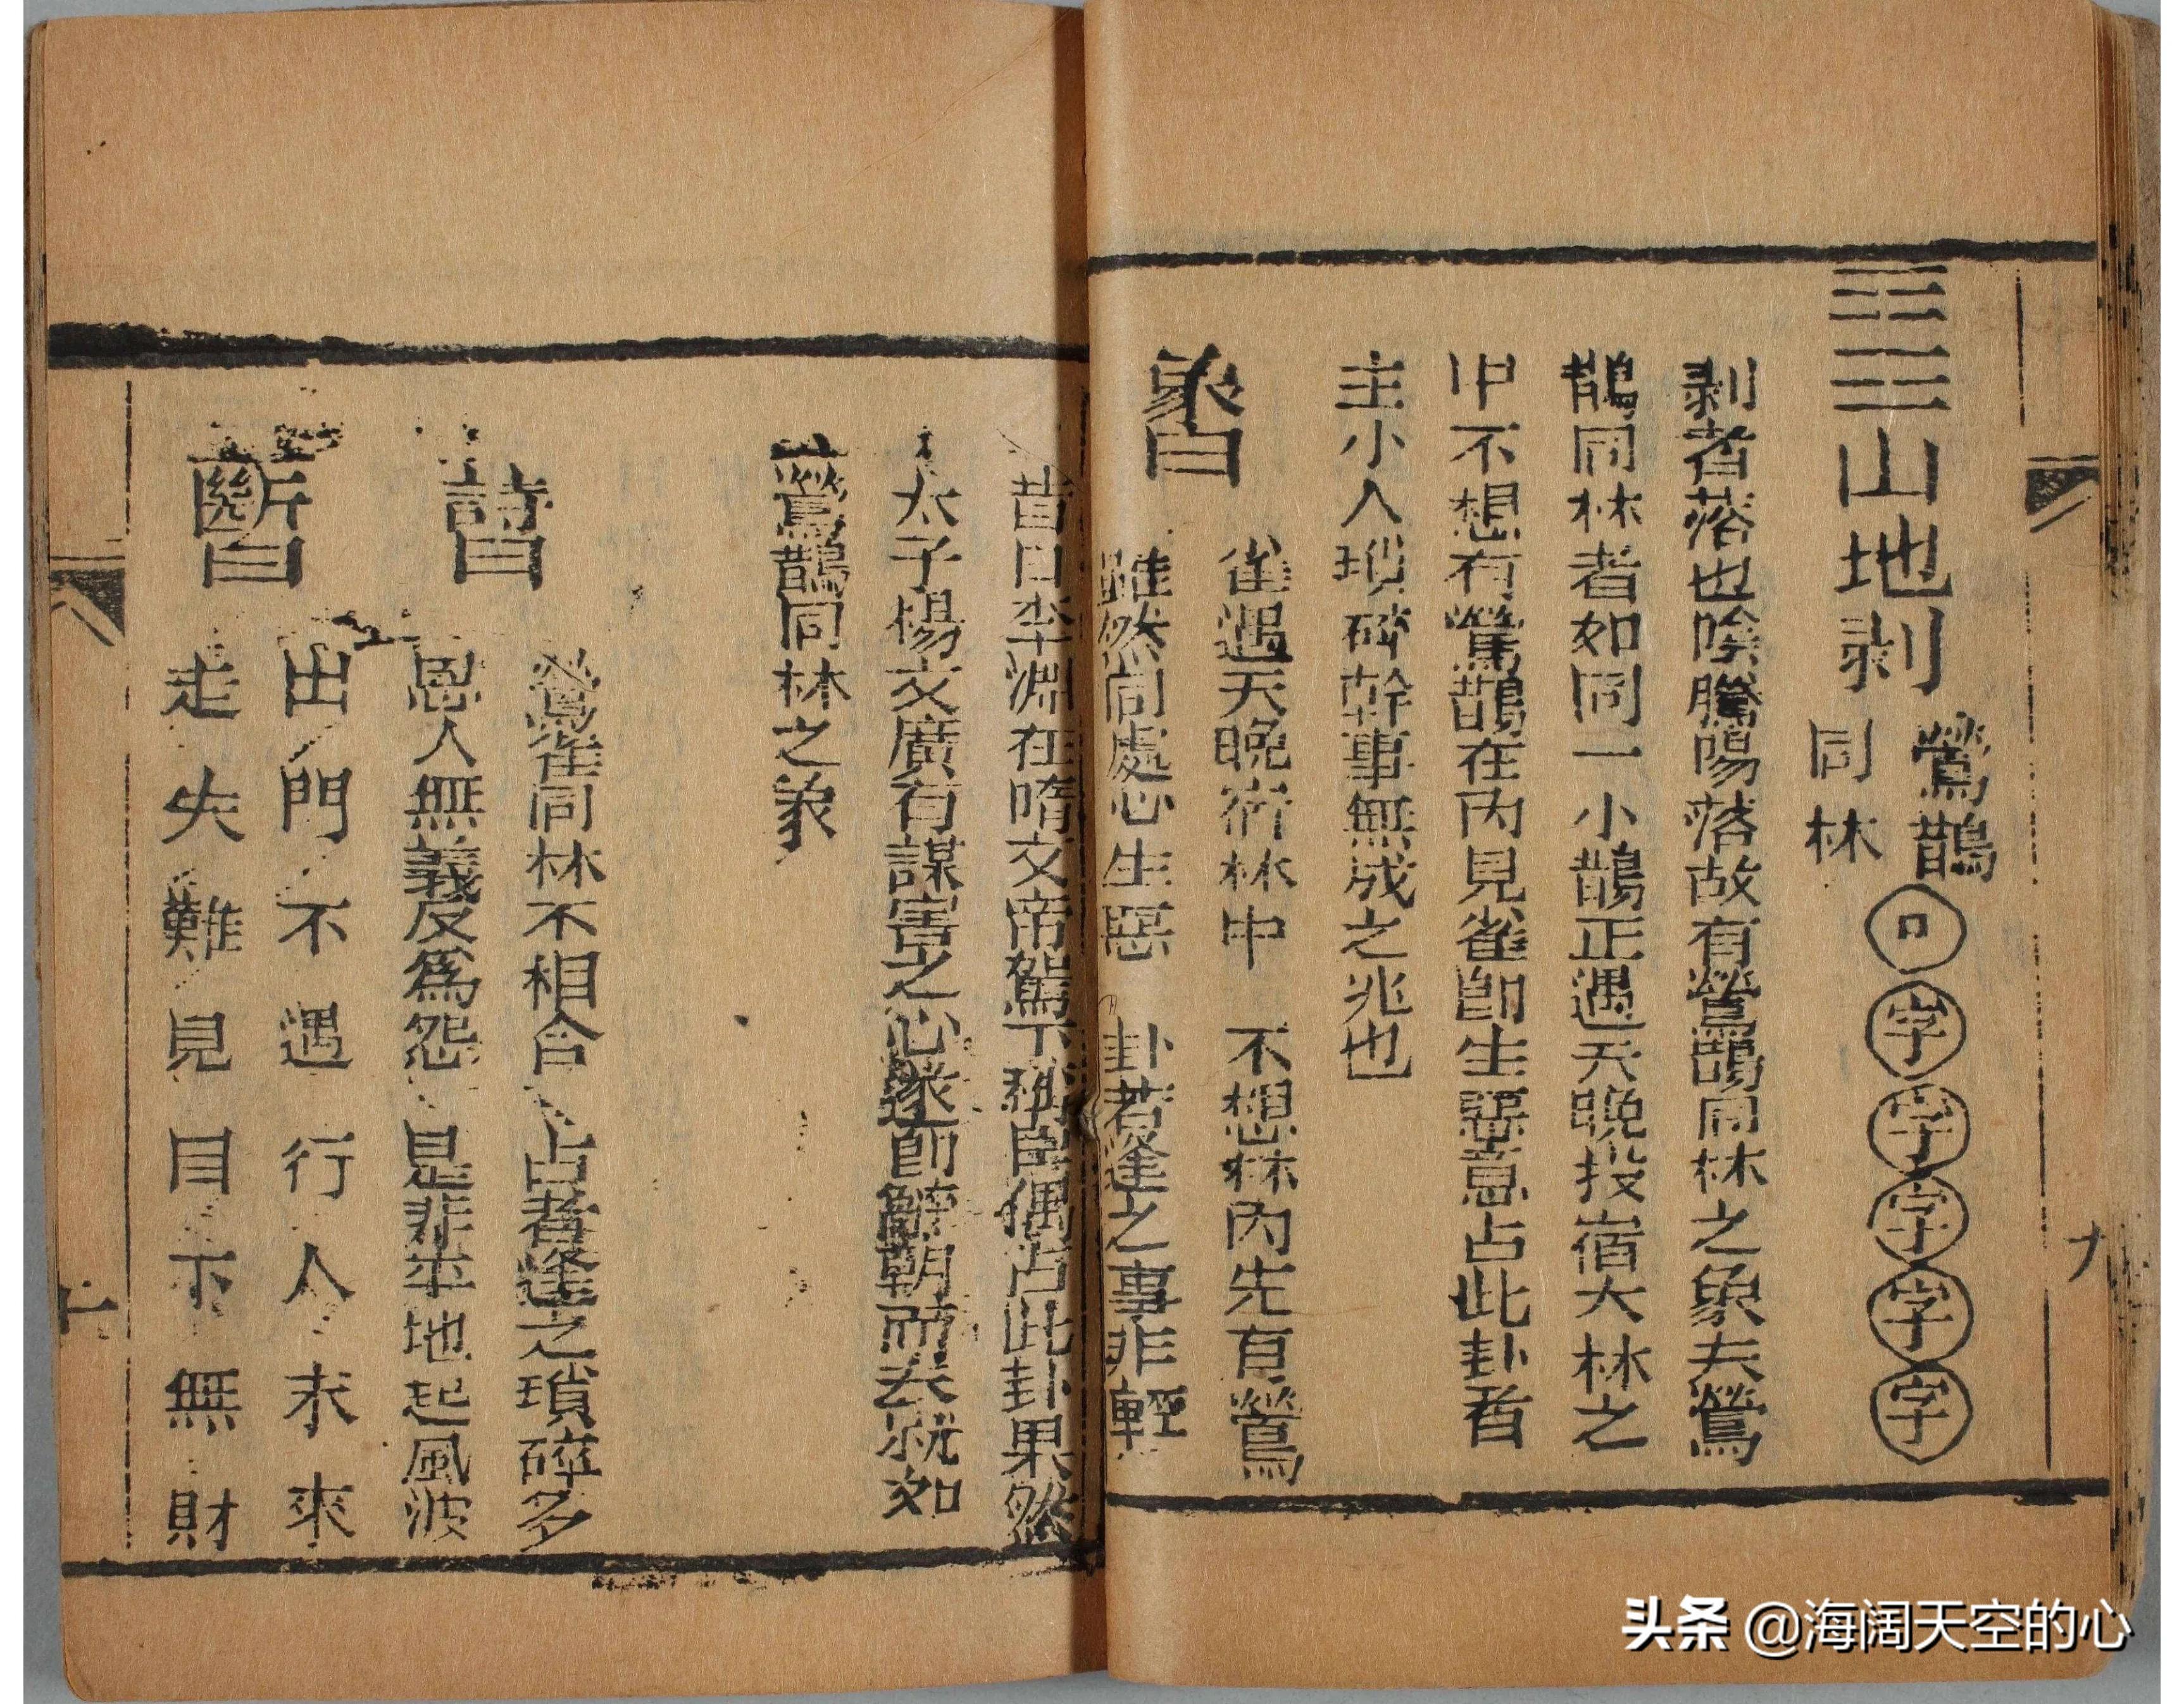 山地剥
鶯鵲
同林
口字字字字字
剥者落也陰騰陽落故有鶯鵲同林之象夫鶯
鵲同林者如同一小鵲正遇天晚投宿大林之
中不想有鶯鵲在內見雀卽生惡意占此卦者
主小人瑣碎幹事無成之兆也
象曰
雀遇天晚宿林中 不想林內先有鶯
雖然同處心生惡 卦若逢之事非輕
昔日李淵在隋文帝駕下稱臣偶占此卦果然
太子楊文廣有謀害之心遂卽辭朝而去就如
鶯鵲同林之象
詩曰
鶯雀同林不相合 占者逢之瑣碎多
恩人無義反爲怨 是非平地起風波
斷曰
出門不遇行人求來
走失難見目下無財
九
十
头条 @海阔天空的心